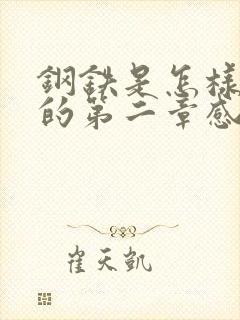 鋼鉄是怎様
的第二章感
崔天凱